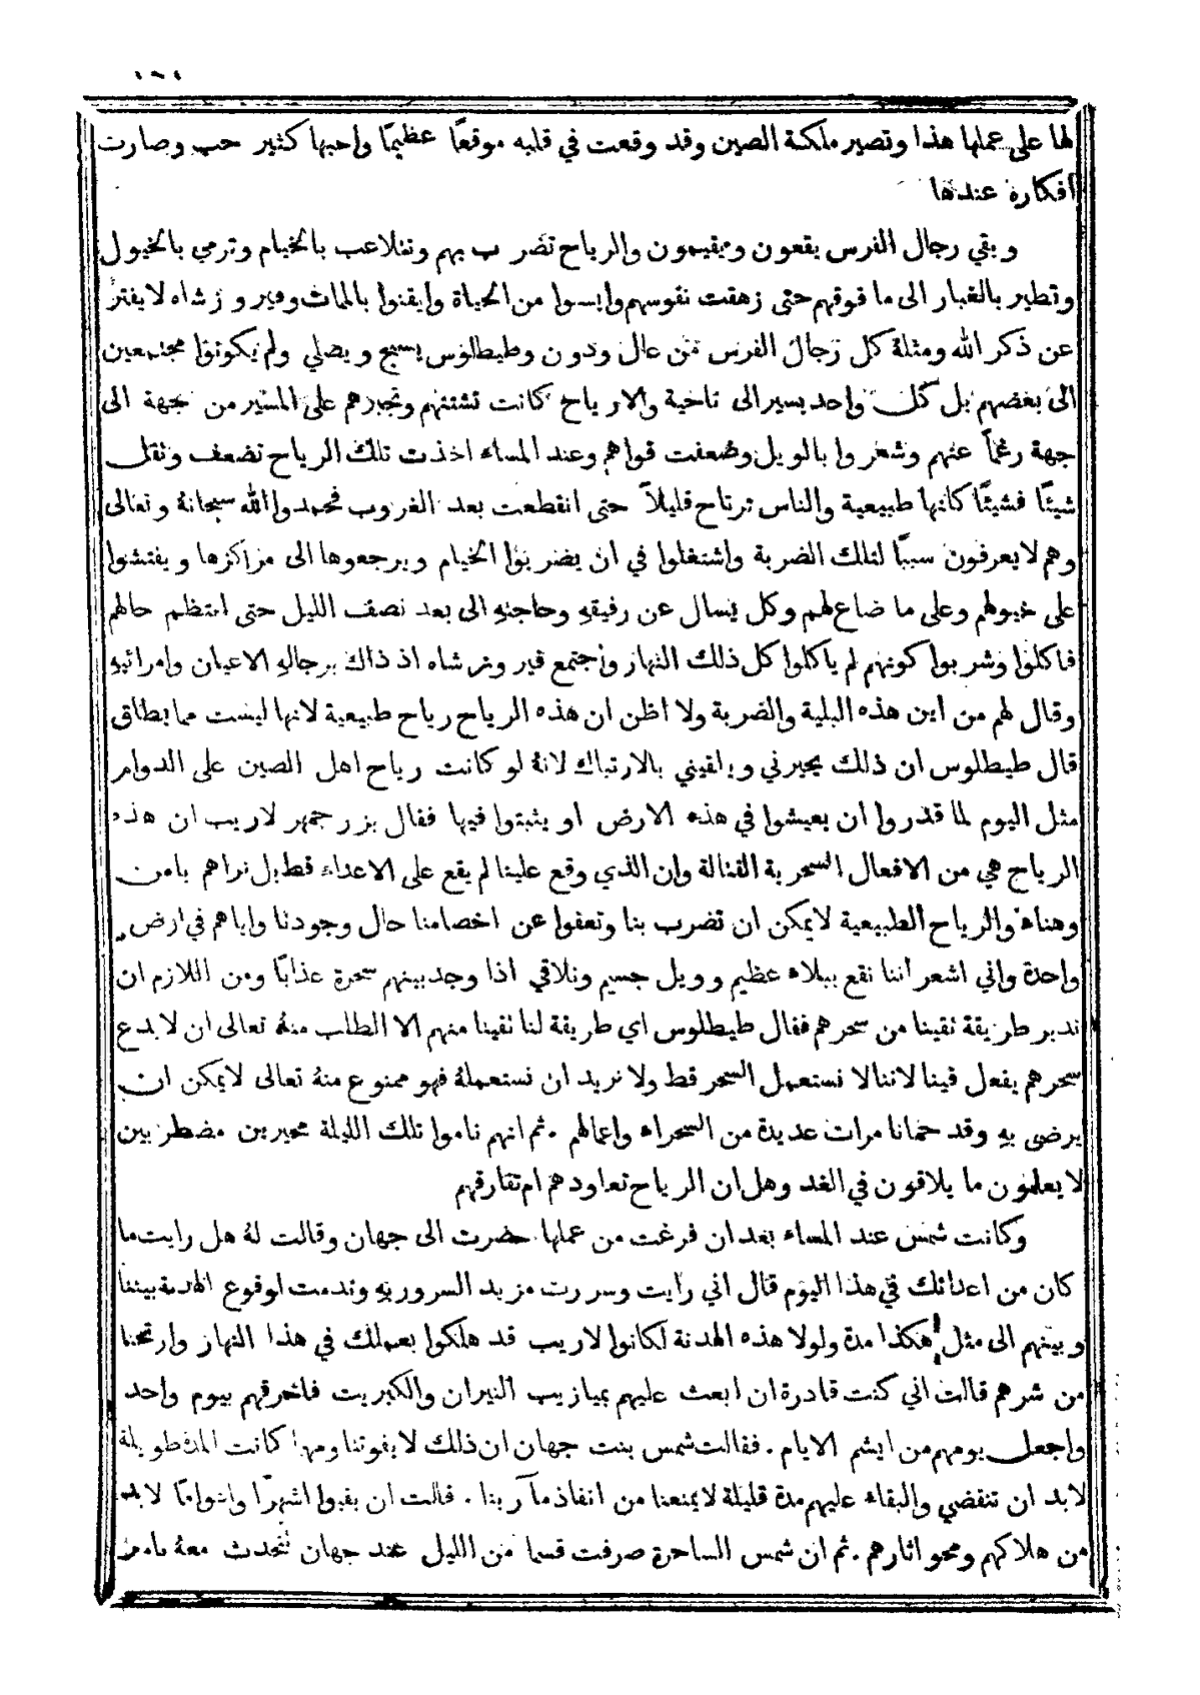 لها على عملها هذا وتصير ملكة الصين وقد وقعت في قلبه موقعًا عظيمًا واحبها كثير حب وصارت
افكاره عندها
وبقي رجال الفرس يقعون ويقيمون والرياح تضرب بهم وتتلاعب بالخيام وترمي بالخيول
وتطير بالغبار الى ما فوقهم حتى زهقت نفوسهم وايسوا من الحياة وايقنوا بالمات وفيروزشاه لا يفتر
عن ذكر الله ومثلة كل رجال الفرس من عال ودون وطيطلوس يسبح ويصلي ولم يكونوا مجتمعين
الى بعضهم بل كل واحد يسير الى ناحية والارياح كانت تشتتهم وتجبرهم على المسير من جهة الى
جهة رغمًا عنهم وشعروا بالويل وضعفت قواهم وعند المساء اخذت تلك الرياح تضعف وتقل
شيئًا فشيئًا كانها طبيعية والناس ترتاح قليلاً حتى انقطعت بعد الغروب فحمدوا الله سبحانهُ وتعالى
وهم لا يعرفون سببًا لتلك الضربة واشتغلوا في ان يضربوا الخيام ويرجعوها الى مراكزها ويفتشوا
على خيولهم وعلى ما ضاع لهم وكل يسال عن رفيقهِ وحاجتهِ الى بعد نصف الليل حتى انتظم حالهم
فاكلوا وشربوا كونهم لم ياكلوا كل ذلك النهار واجتمع فيروزشاه اذ ذاك برجالهِ الاعيان وامرائيهِ
وقال لهم من اين هذه البلية والضربة ولا اظن ان هذه الرياح رياح طبيعية لانها ليست مما يطاق
قال طيطلوس ان ذلك يحيرني ويلقيني بالارتباك لانهُ لو كانت رياح اهل الصين على الدوام
مثل اليوم لما قدروا ان يعيشوا في هذه الارض او يثبتوا فيها فقال بزرجمهر لا ريب ان هذه
الرياح هي من الافعال السحرية القتالة وان الذي وقع علينا لم يقع على الاعداء قط بل نراهم بامن
وهناء والرياح الطبيعية لا يمكن ان تضرب بنا وتعفوا عن اخصامنا حال وجودنا واياهم في ارض
واحدة واني اشعر اننا نقع ببلاء عظيم وويل جسيم ونلاقي اذا وجد بينهم سحرة عذابًا ومن اللازم ان
ندبر طريقة تقينا من سحرهم فقال طيطلوس اي طريقة لنا تقينا منهم الا الطلب منهُ تعالى ان لا يدع
سحرهم يفعل فينا لاننا لا نستعمل السحر قط ولا نريد ان نستعملهُ فهو ممنوع منهُ تعالى لا يمكن ان
يرضى بهِ وقد حمانا مرات عديدة من السحراء واعمالهم . ثم انهم ناموا تلك الليلة محيرين مضطربين
لا يعلمون ما يلاقون في الغد وهل ان الرياح تعاودهم ام تفارقهم
وكانت شمس عند المساء بعد ان فرغت من عملها حضرت الى جهان وقالت لهُ هل رايت ما
كان من اعدائك في هذا اليوم قال اني رايت وسررت مزيد السرور بهِ وندمت لوقوع الهدنة بيننا
وبينهم الى مثل هكذا مدة ولولا هذه الهدنة لكانوا لا ريب قد هلكوا بعملك في هذا النهار وارتحنا
من شرهم قالت اني كنت قادرة ان ابعث عليهم بميازيب النيران والكبريت فاحرقهم بيوم واحد
واجعل يومهم من ايشم الايام . فقالت شمس بنت جهان ان ذلك لا يفوتنا ومهما كانت المدة طويلة
لا بد ان تنقضي والبقاء عليهم مدة قليلة لا يمنعنا من انفاذ مآربنا . قالت ان بقوا اشهرًا واعوامًا لا بد
من هلاكهم ومحو اثارهم . ثم ان شمس الساحرة صرفت قسما من الليل عند جهان تتحدث معهُ بامر